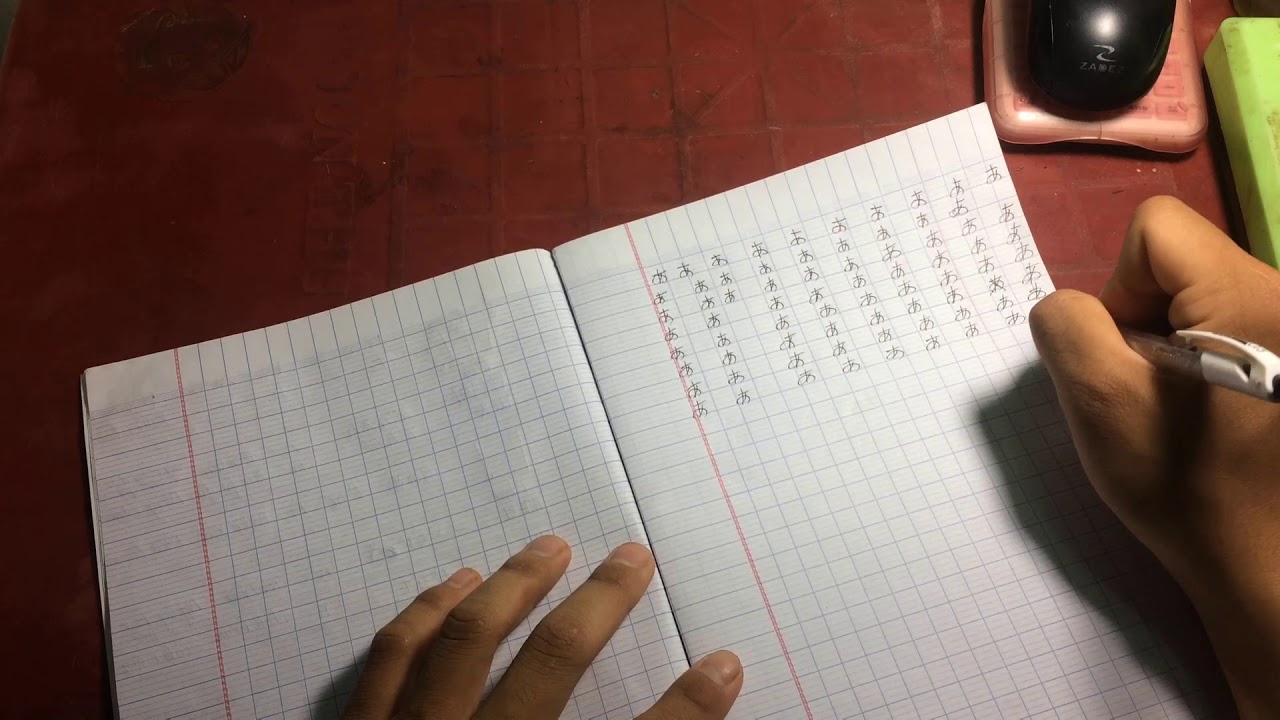 ZADEZ
あ あ あ あ あ あ あ あ あ あ
あ あ あ あ あ あ あ あ あ あ
あ あ あ あ あ あ あ あ あ あ
あ あ あ あ あ あ あ あ あ
あ あ あ あ あ あ あ あ あ
あ あ あ あ あ あ あ あ あ
あ あ あ あ あ あ あ あ
あ あ あ あ あ あ あ あ